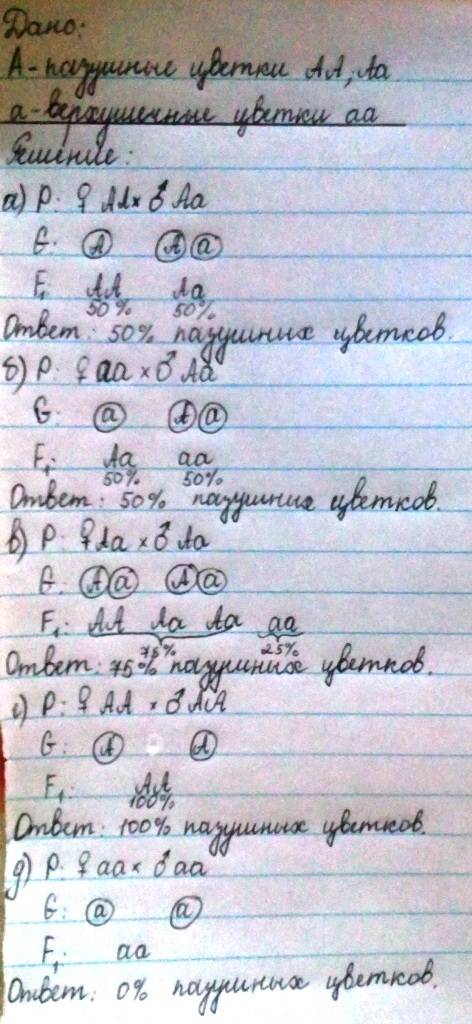 Дано:
А - пазушные цветки АА; Аа
а - верхушечные цветки аа
Решение:
а) Р: ♀ АА × ♂ Аа
G: А А а
F₁ АА Аа
50% 50%
Ответ: 50% пазушных цветков.
б) Р: ♀ аа × ♂ Аа
G: а А а
F₁: Аа аа
50% 50%
Ответ: 50% пазушних цветков.
в) Р: ♀ Аа × ♂ Аа
G: А а А а
F₁: АА Аа Аа аа
75% 25%
Ответ: 75% пазушных цветков.
г) Р: ♀ АА × ♂ АА
G: А А
F₁: АА
100%
Ответ: 100% пазушных цветков.
д) Р: ♀ аа × ♂ аа
G: а а
F₁: аа
Ответ: 0% пазушных цветков.